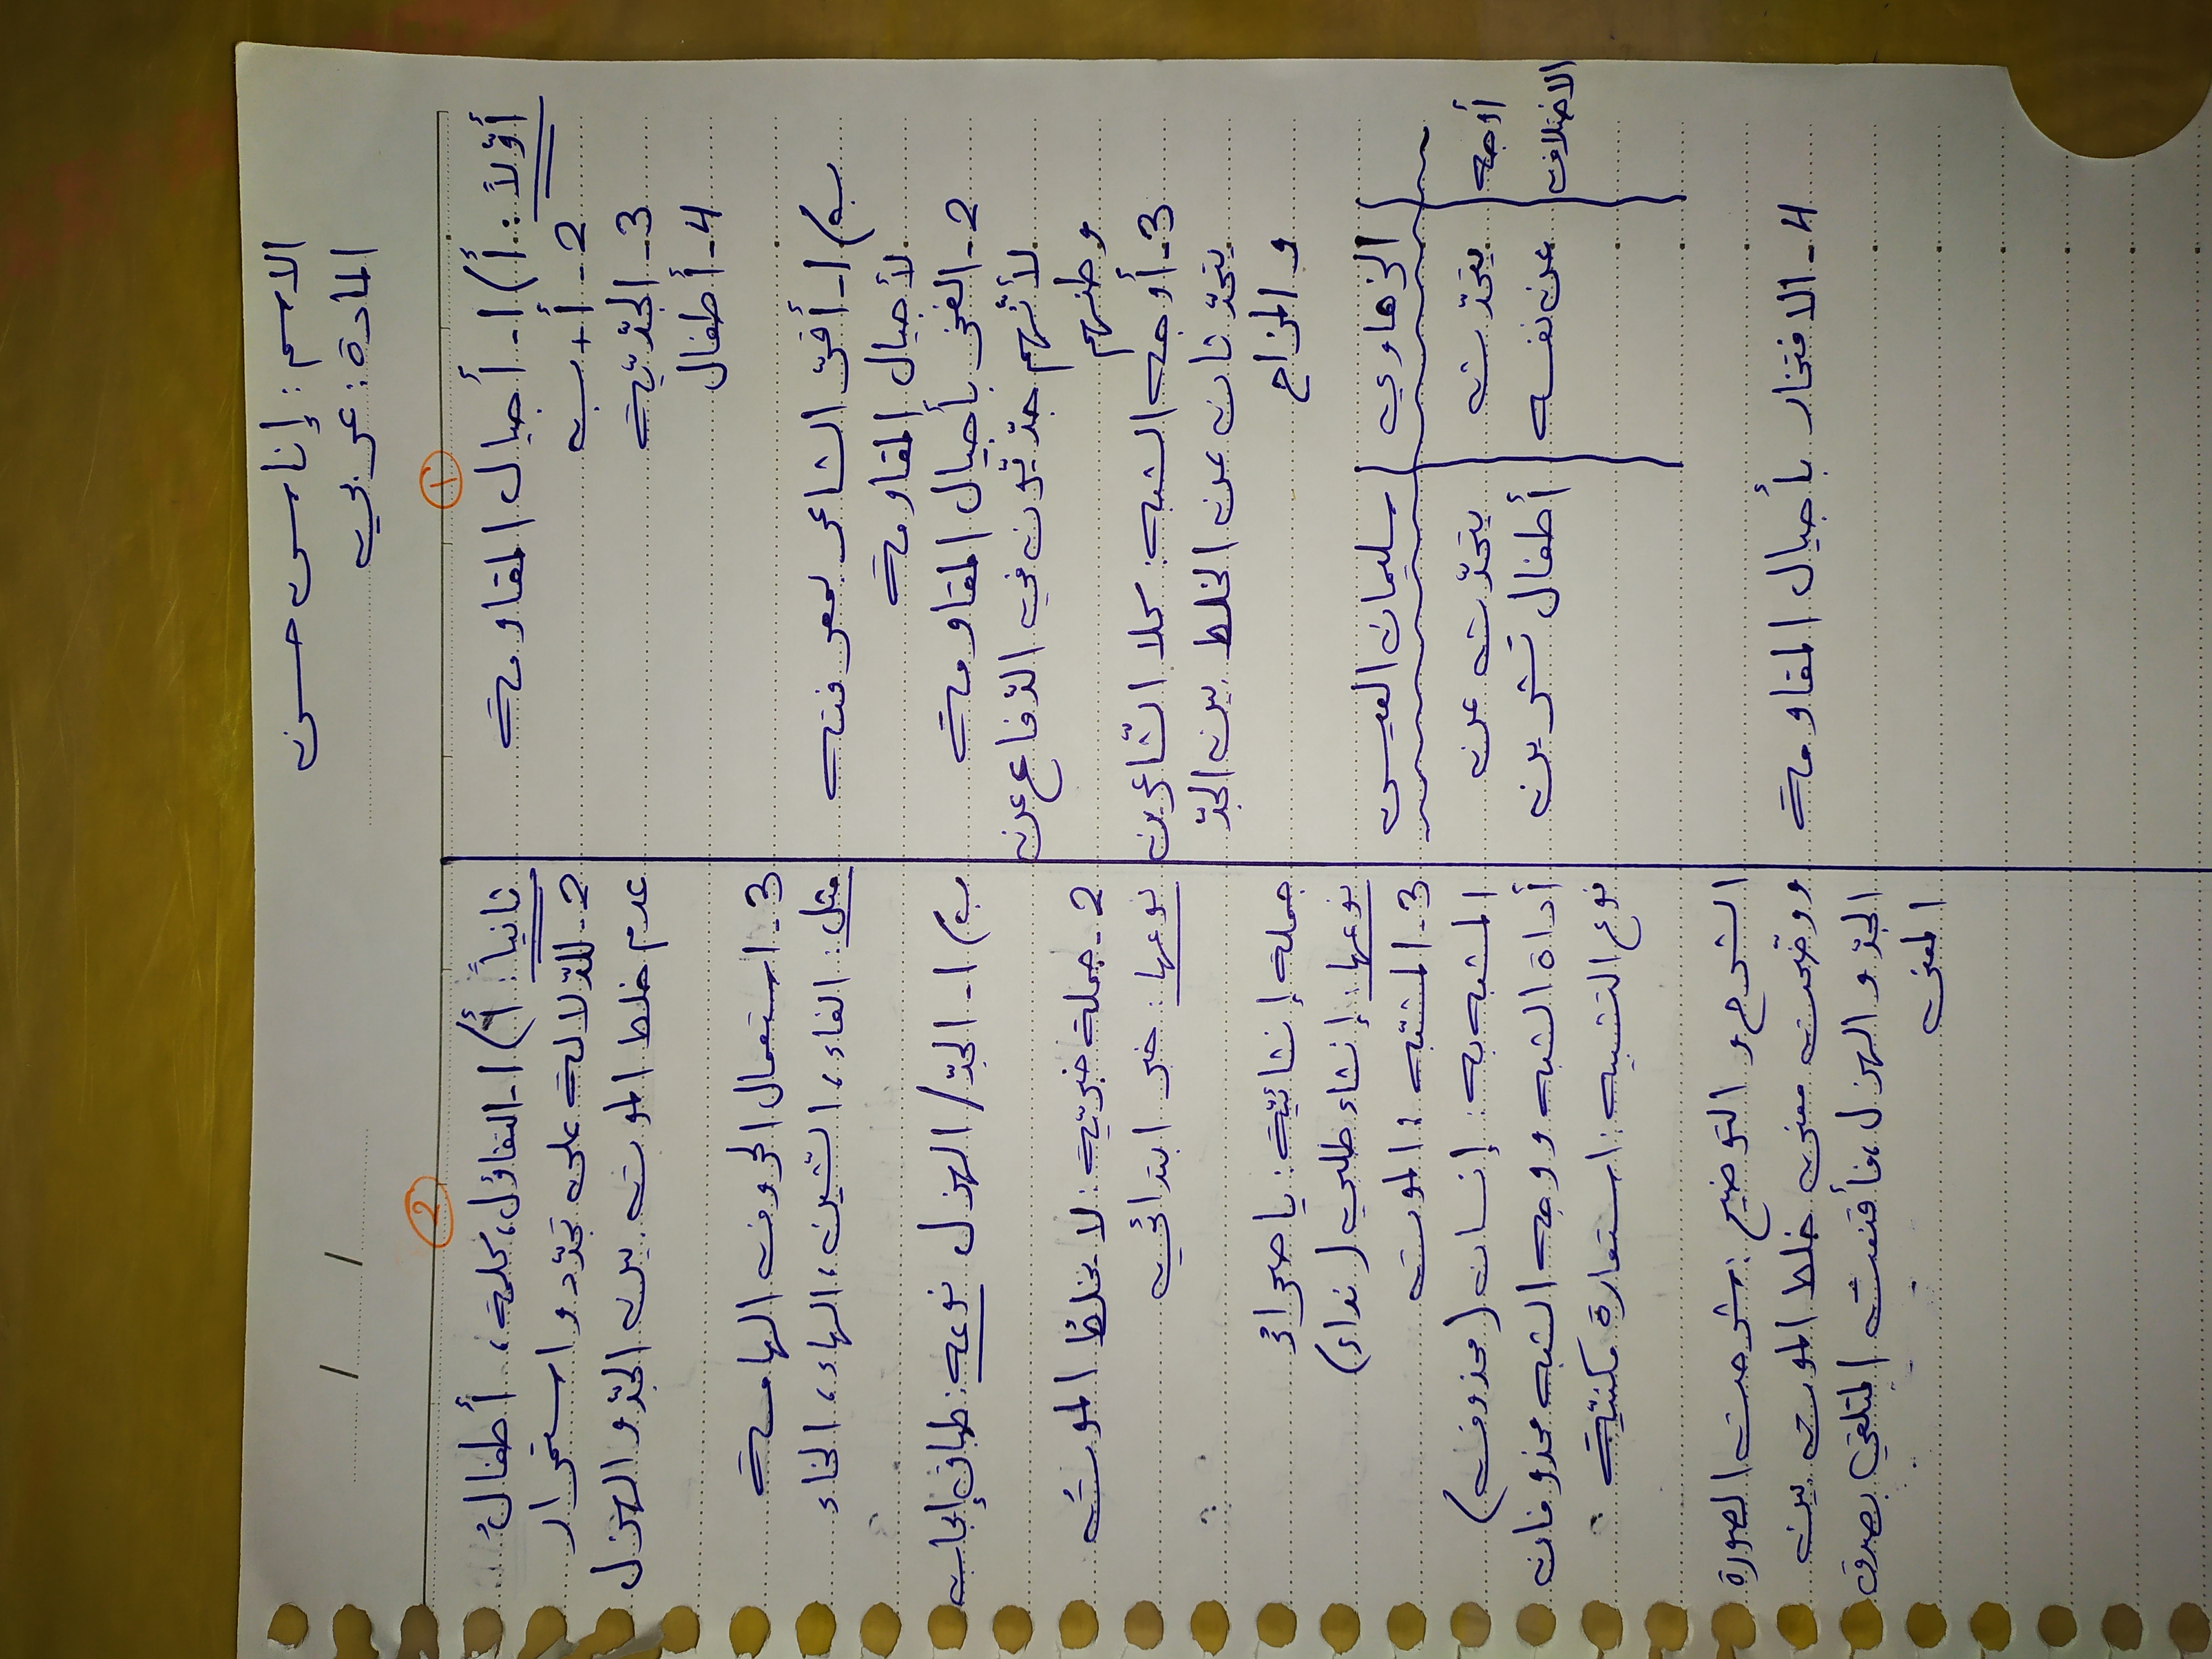 الاسم : إناس حسن
المادة : عربي
1
أوّلاً : أ) 1- أجيال المقاومة
2- أ + ب
3- الجدّيّة
4- أطفال
ب) 1- أقرّ الشاعر بمعرفته
لأجيال المقاومة
2- الفخر بأجيال المقاومة
لأنّهم جدّيّون في الدّفاع عن
وطنهم
3- أوجه الشبه : كلا الشّاعرين
يتحدّثان عن الخلط بين الجدّ
و المزاح
الزهاوي سليمان العيسى
أوجه يتحدّث يتحدّث عن
الاختلاف عن نفسه أطفال تشرين
4- الافتخار بأجيال المقاومة
2
ثانياً : أ) 1- التفاؤل، كلمة، أطفالُ
2- للدّلالة على تجدّد و استمرار
عدم خلط الموت بين الجدّ و الهزل
3- استعمال الحروف الهامسة
مثل : الفاء، الشّين، الهاء، الخاء
ب) 1- الجدّ / الهزل نوعه : طباق إيجاب
2- جملة خبريّة : لا يخلطُ الموتُ
نوعها : خبر ابتدائي
جملة إنشائيّة : يا صحراءُ
نوعها : إنشاء طلبي ( نداء )
3- المشبّه : الموت
المشبه به : إنسان ( محذوف )
أداة الشبه و وجه الشبه محذوفان
نوع التشبيه : استعارة مكنيّة
الشرح و التوضيح : شرحت الصورة
ووضّحت معنى خلط الموت بين
الجدّ و الهزل، فأقنعت المتلقي بصدق
المعنى